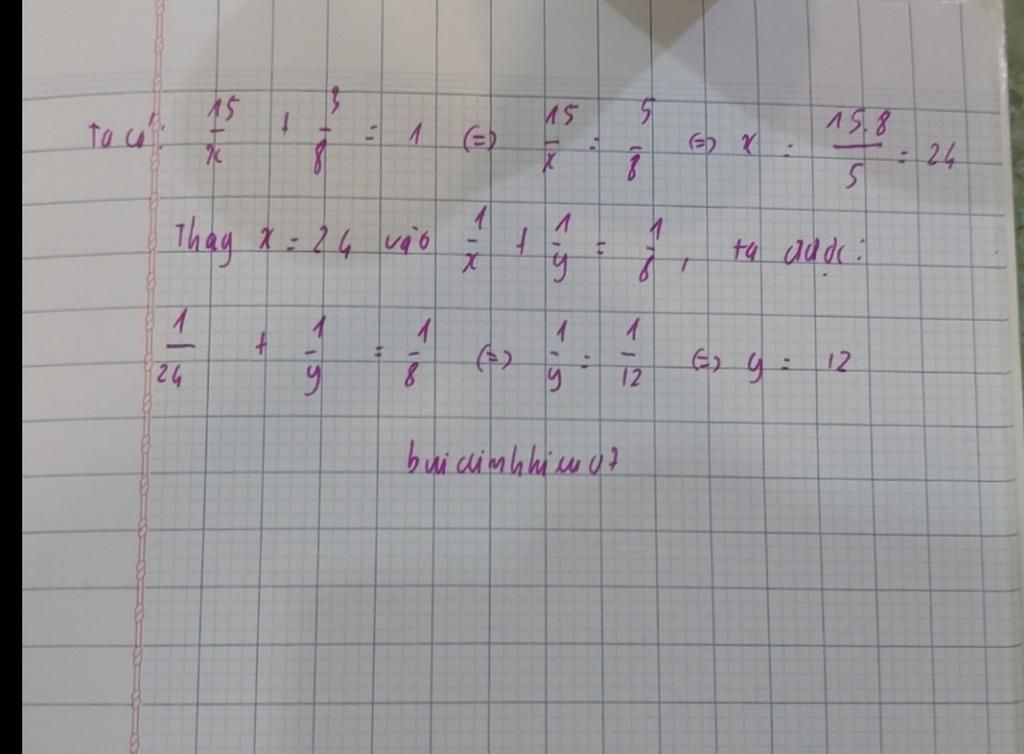 Ta có: 15/x + 3/8 = 1 (=) 15/x = 5/8 (=) x = 15.8/5 = 24
Thay x = 24 vào 1/x + 1/y = 1/8, ta được:
1/24 + 1/y = 1/8 (=) 1/y = 1/12 (=) y = 12